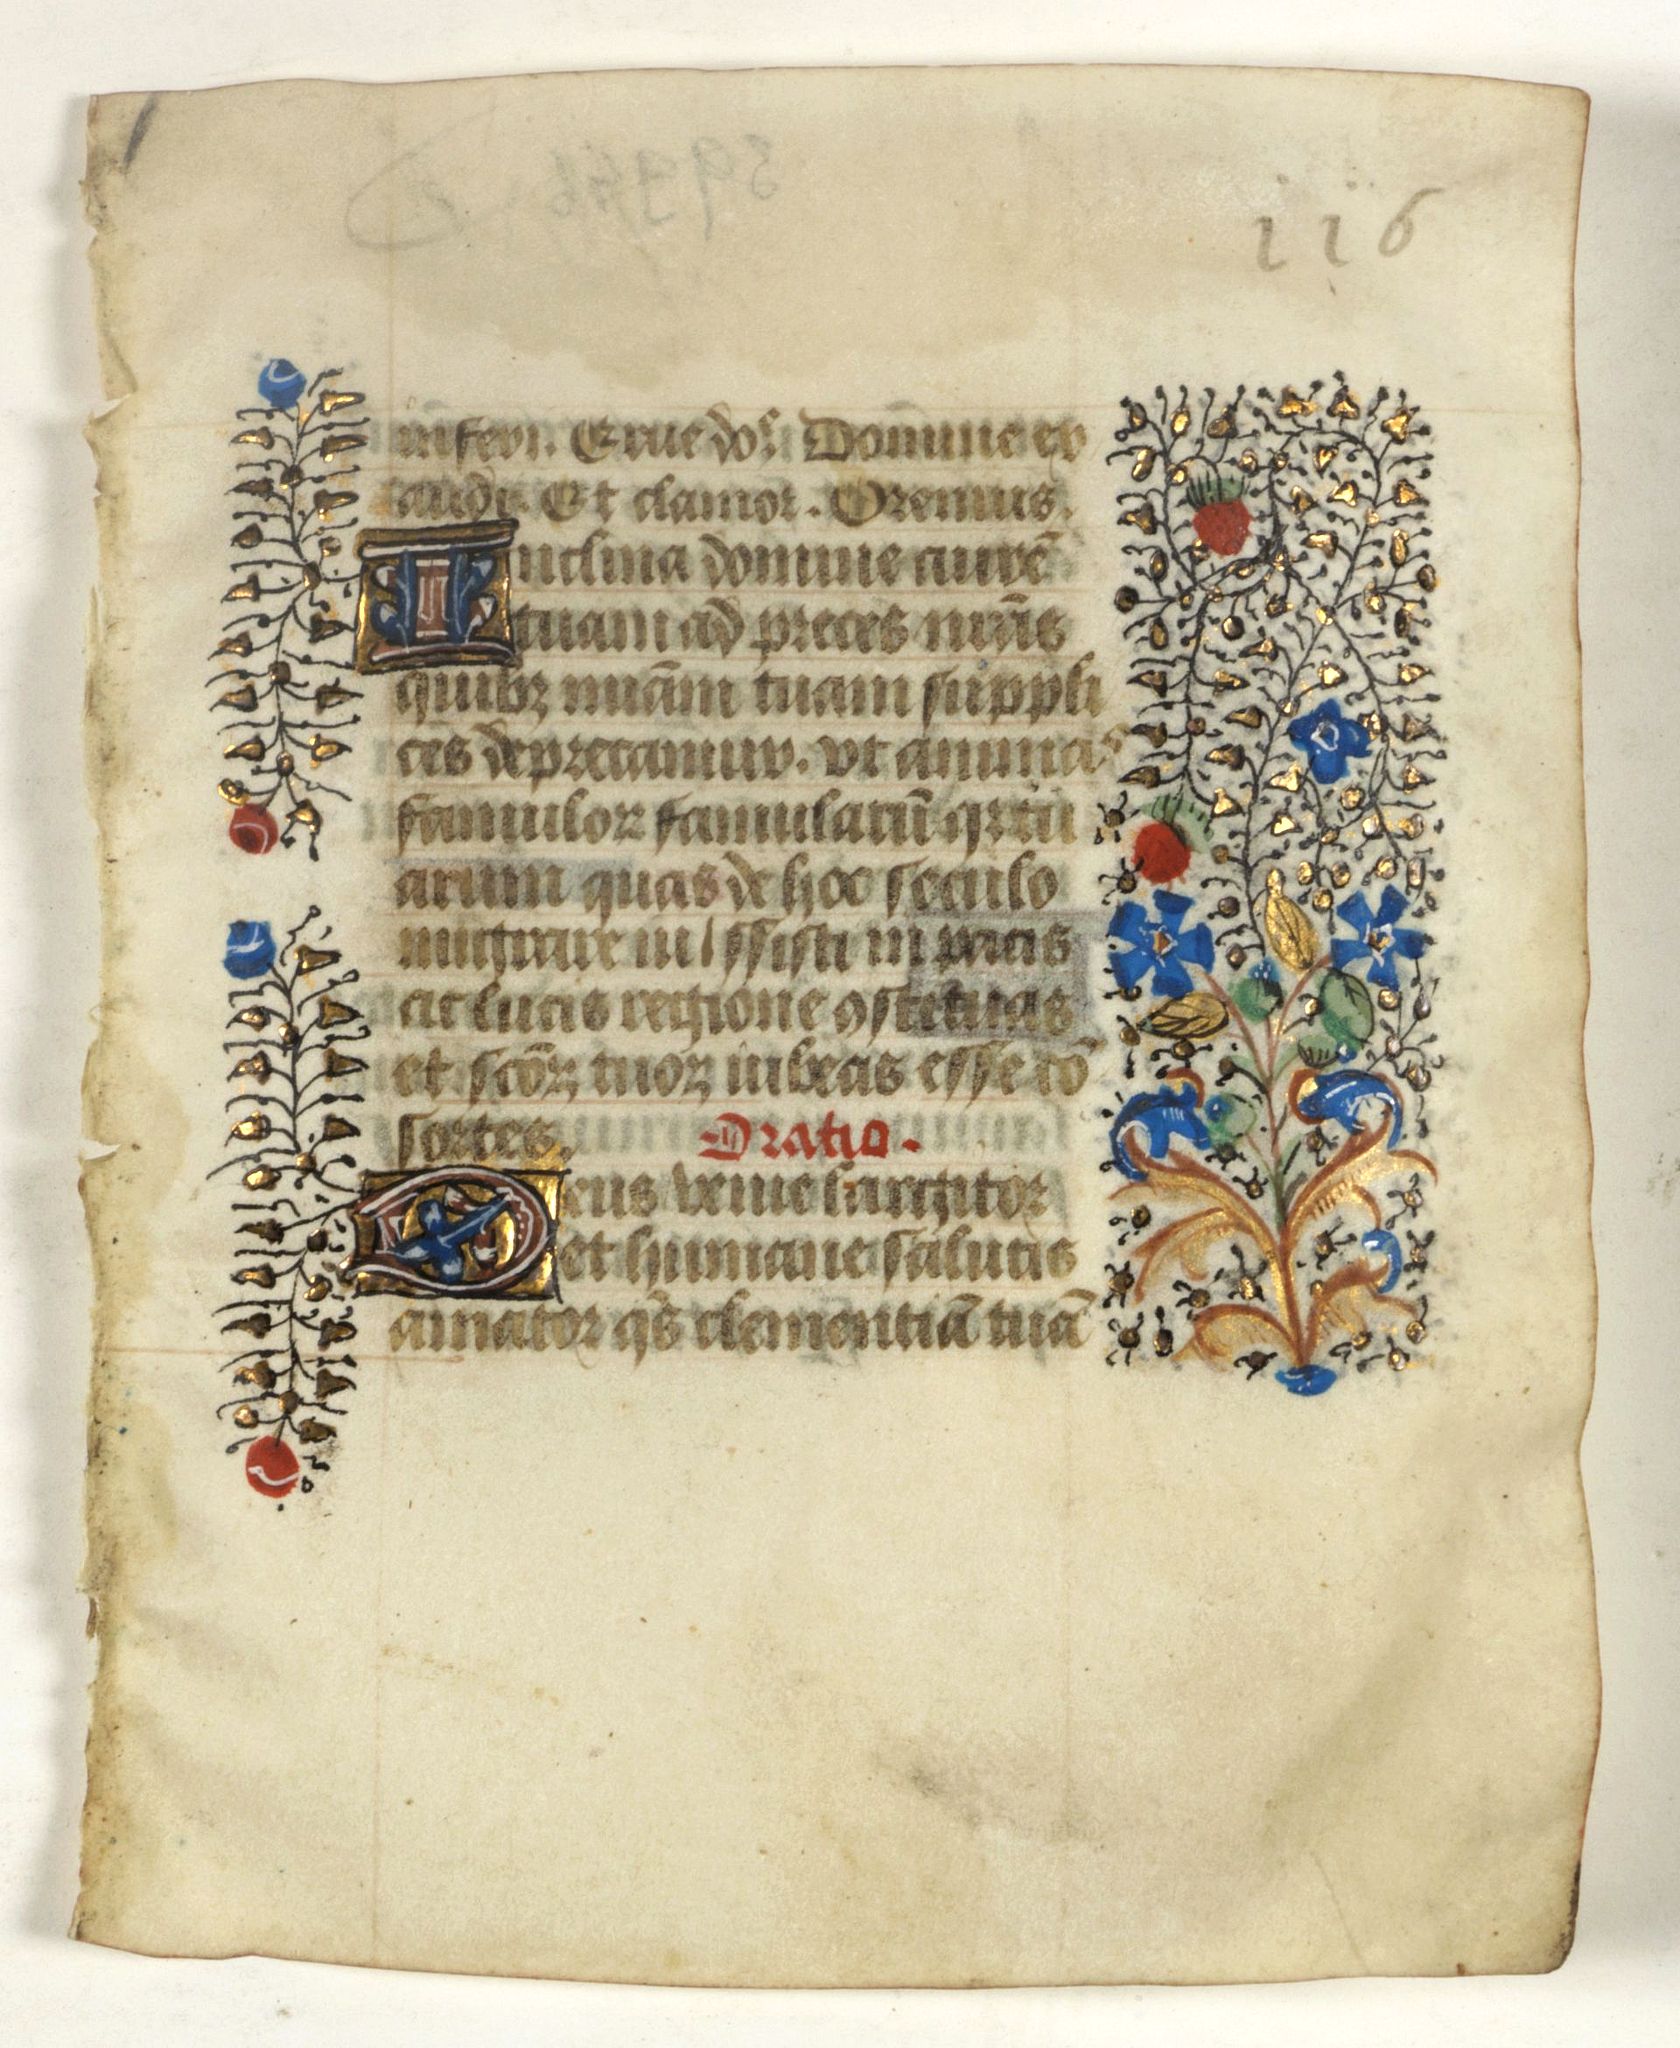 116
inferi. Erue dos Domine ex
audi. Et clamor. Oremus.
Inclina domine aurē
tuam ad preces nr̄as
quibꝫ mīam tuam suppli
ces deprecamur. vt animas
famuloꝝ famularū qꝫ tu
arum quas de hoc seculo
migrare iussisti in pacis
ac lucis regione ꝯstituas
et sc̄oꝝ tuoꝝ iubeas esse cō
sortes. Oratio.
Deus venie largitor
et humane salutis
amator qs̄ clementiā tuā